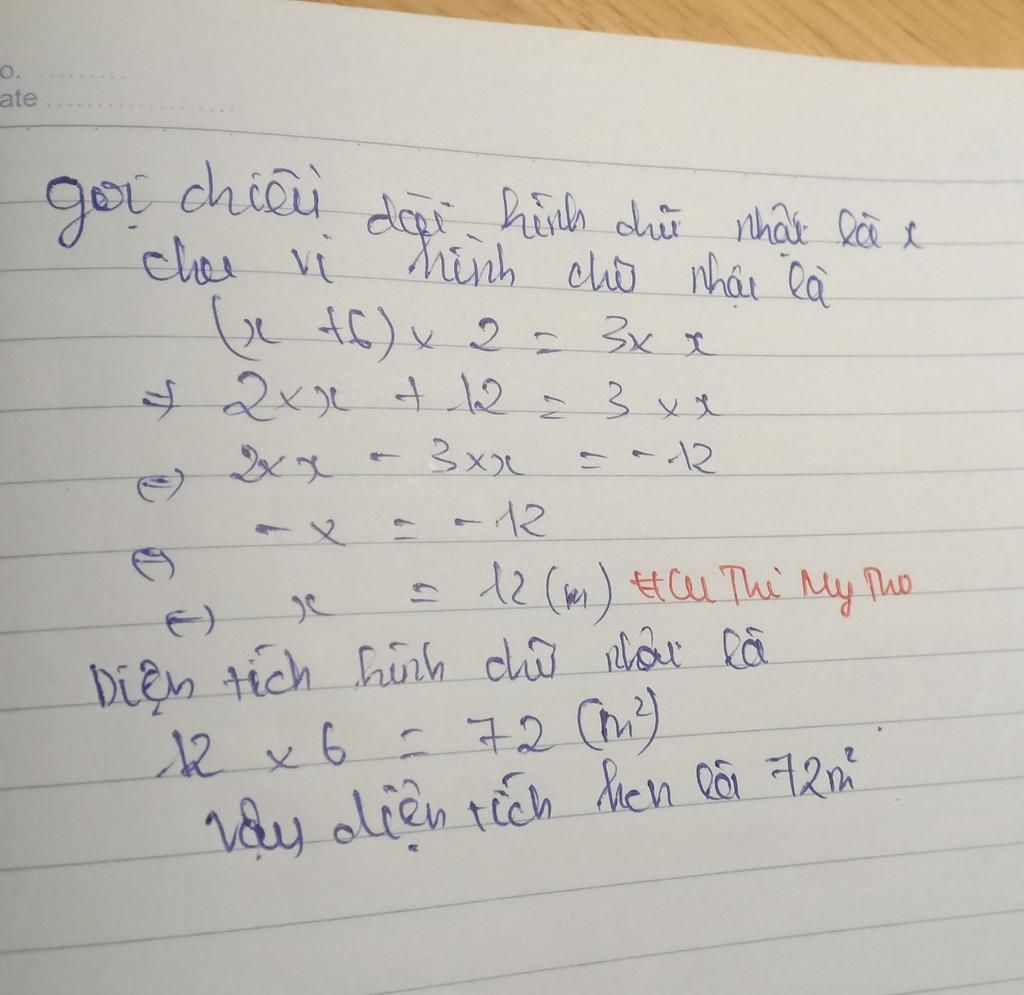 o. .........
ate ..................
gọi chiều dài hình chữ nhật là x
chu vi hình chữ nhật là
(x + 6) x 2 = 3 x x
=> 2 x x + 12 = 3 x x
(=) 2 x x - 3 x x = -12
(=) - x = -12
(=) x = 12 (m) #Cu Thi My Tho
Diện tích hình chữ nhật là
12 x 6 = 72 (m²)
Vậy diện tích hcn là 72m²